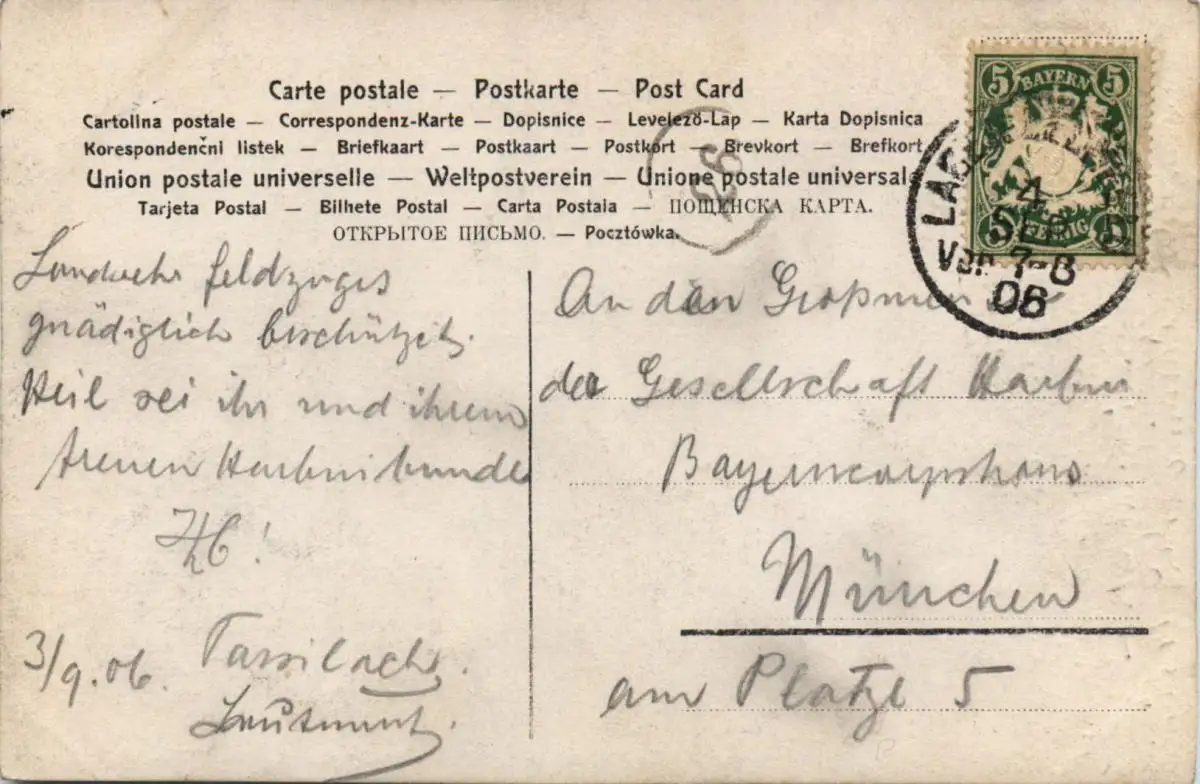 Carte postale — Postkarte — Post Card
Cartolina postale — Correspondenz-Karte — Dopisnice — Levelező-Lap — Karta Dopisnica
Korespondenčni listek — Briefkaart — Postkaart — Postkort — Brevkort — Brefkort
Union postale universelle — Weltpostverein — Unione postale universale
Tarjeta Postal — Bilhete Postal — Carta Postala — ПОЩЕНСКА КАРТА.
ОТКРЫТОЕ ПИСЬМО. — Pocztówka.
5 BAYERN 5
LAG
4
SEP
Vor. 7-8
06
Landwehr feldzuges
gnädiglich beschützet.
Heil sei ihr und ihrem
treuen
3/9.06.
Leutnant.
An den
der Gesellschaft
München
am Platzl 5